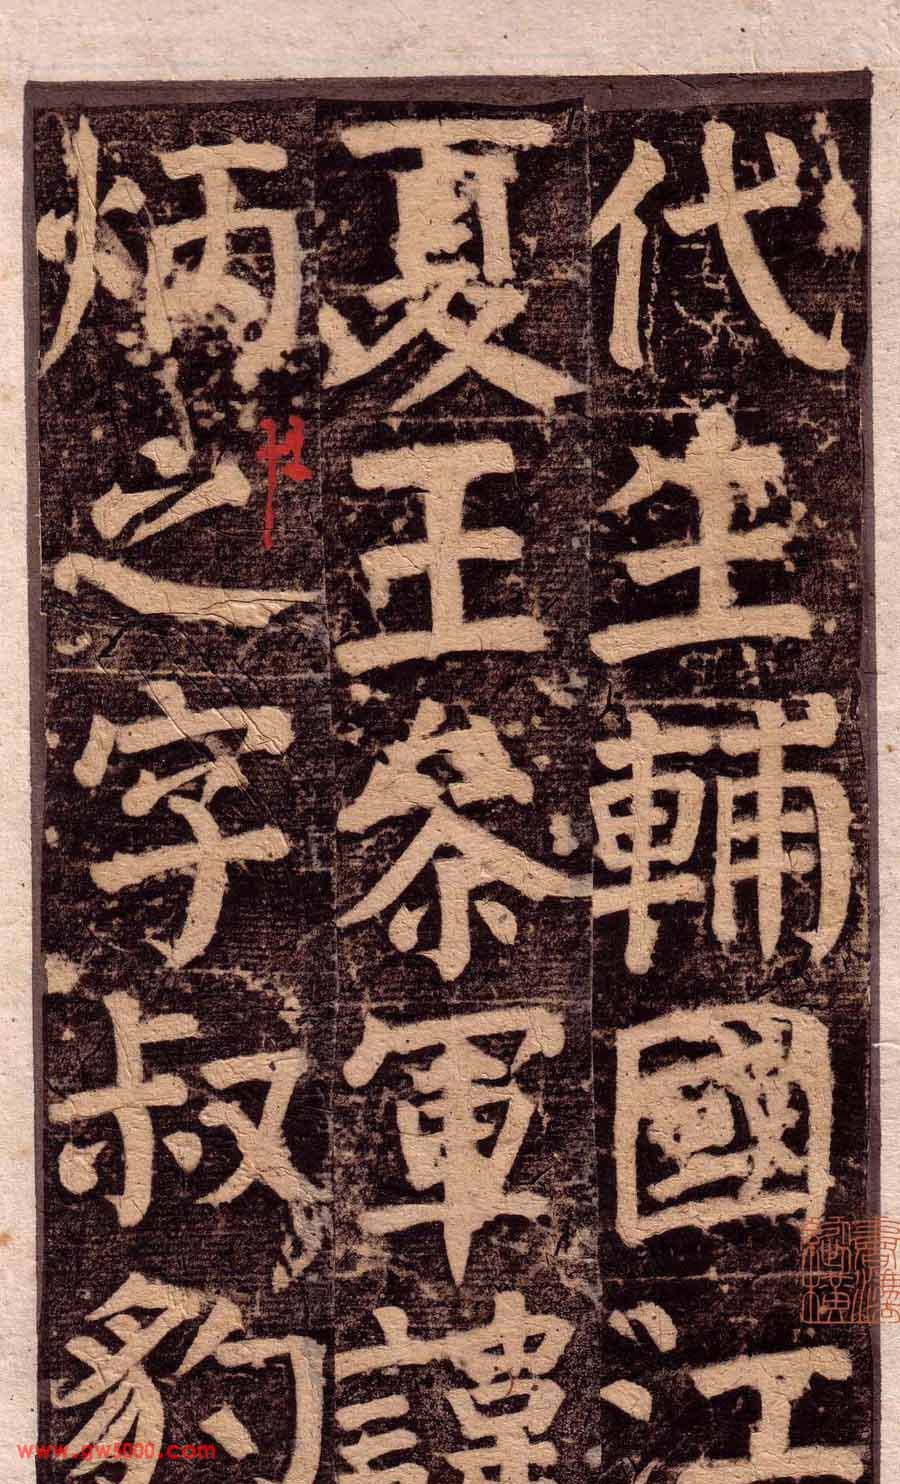 代生輔國江
夏王叅軍諱
炳之字叔豹
www.gw5000.com